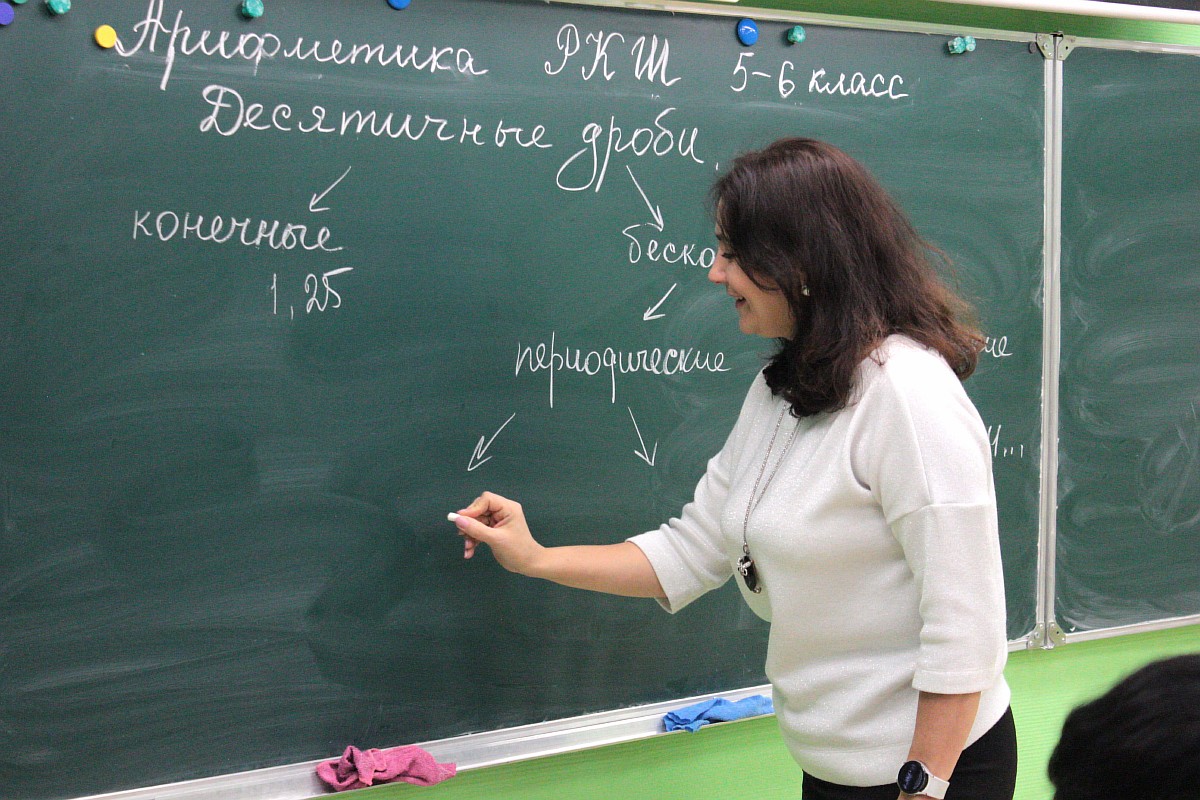 Арифметика РКШ 5-6 класс
Десятичные дроби.
конечные
беско
1,25
периодические